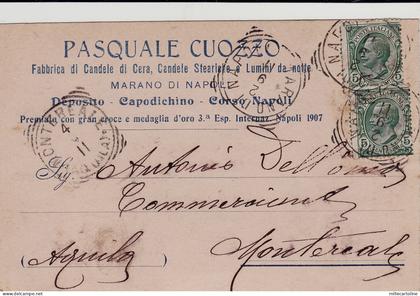 PASQUALE CUOZZO
Fabbrica di Candele di Cera, Candele Steariche e Lumini da notte
MARANO DI NAPOLI
Deposito - Capodichino - Corso Napoli
Premiato con gran croce e medaglia d'oro 3.ª Esp. Internaz. Napoli 1907
Sig. Antonio Dell'
Commerciante
(Aquila) Montereale